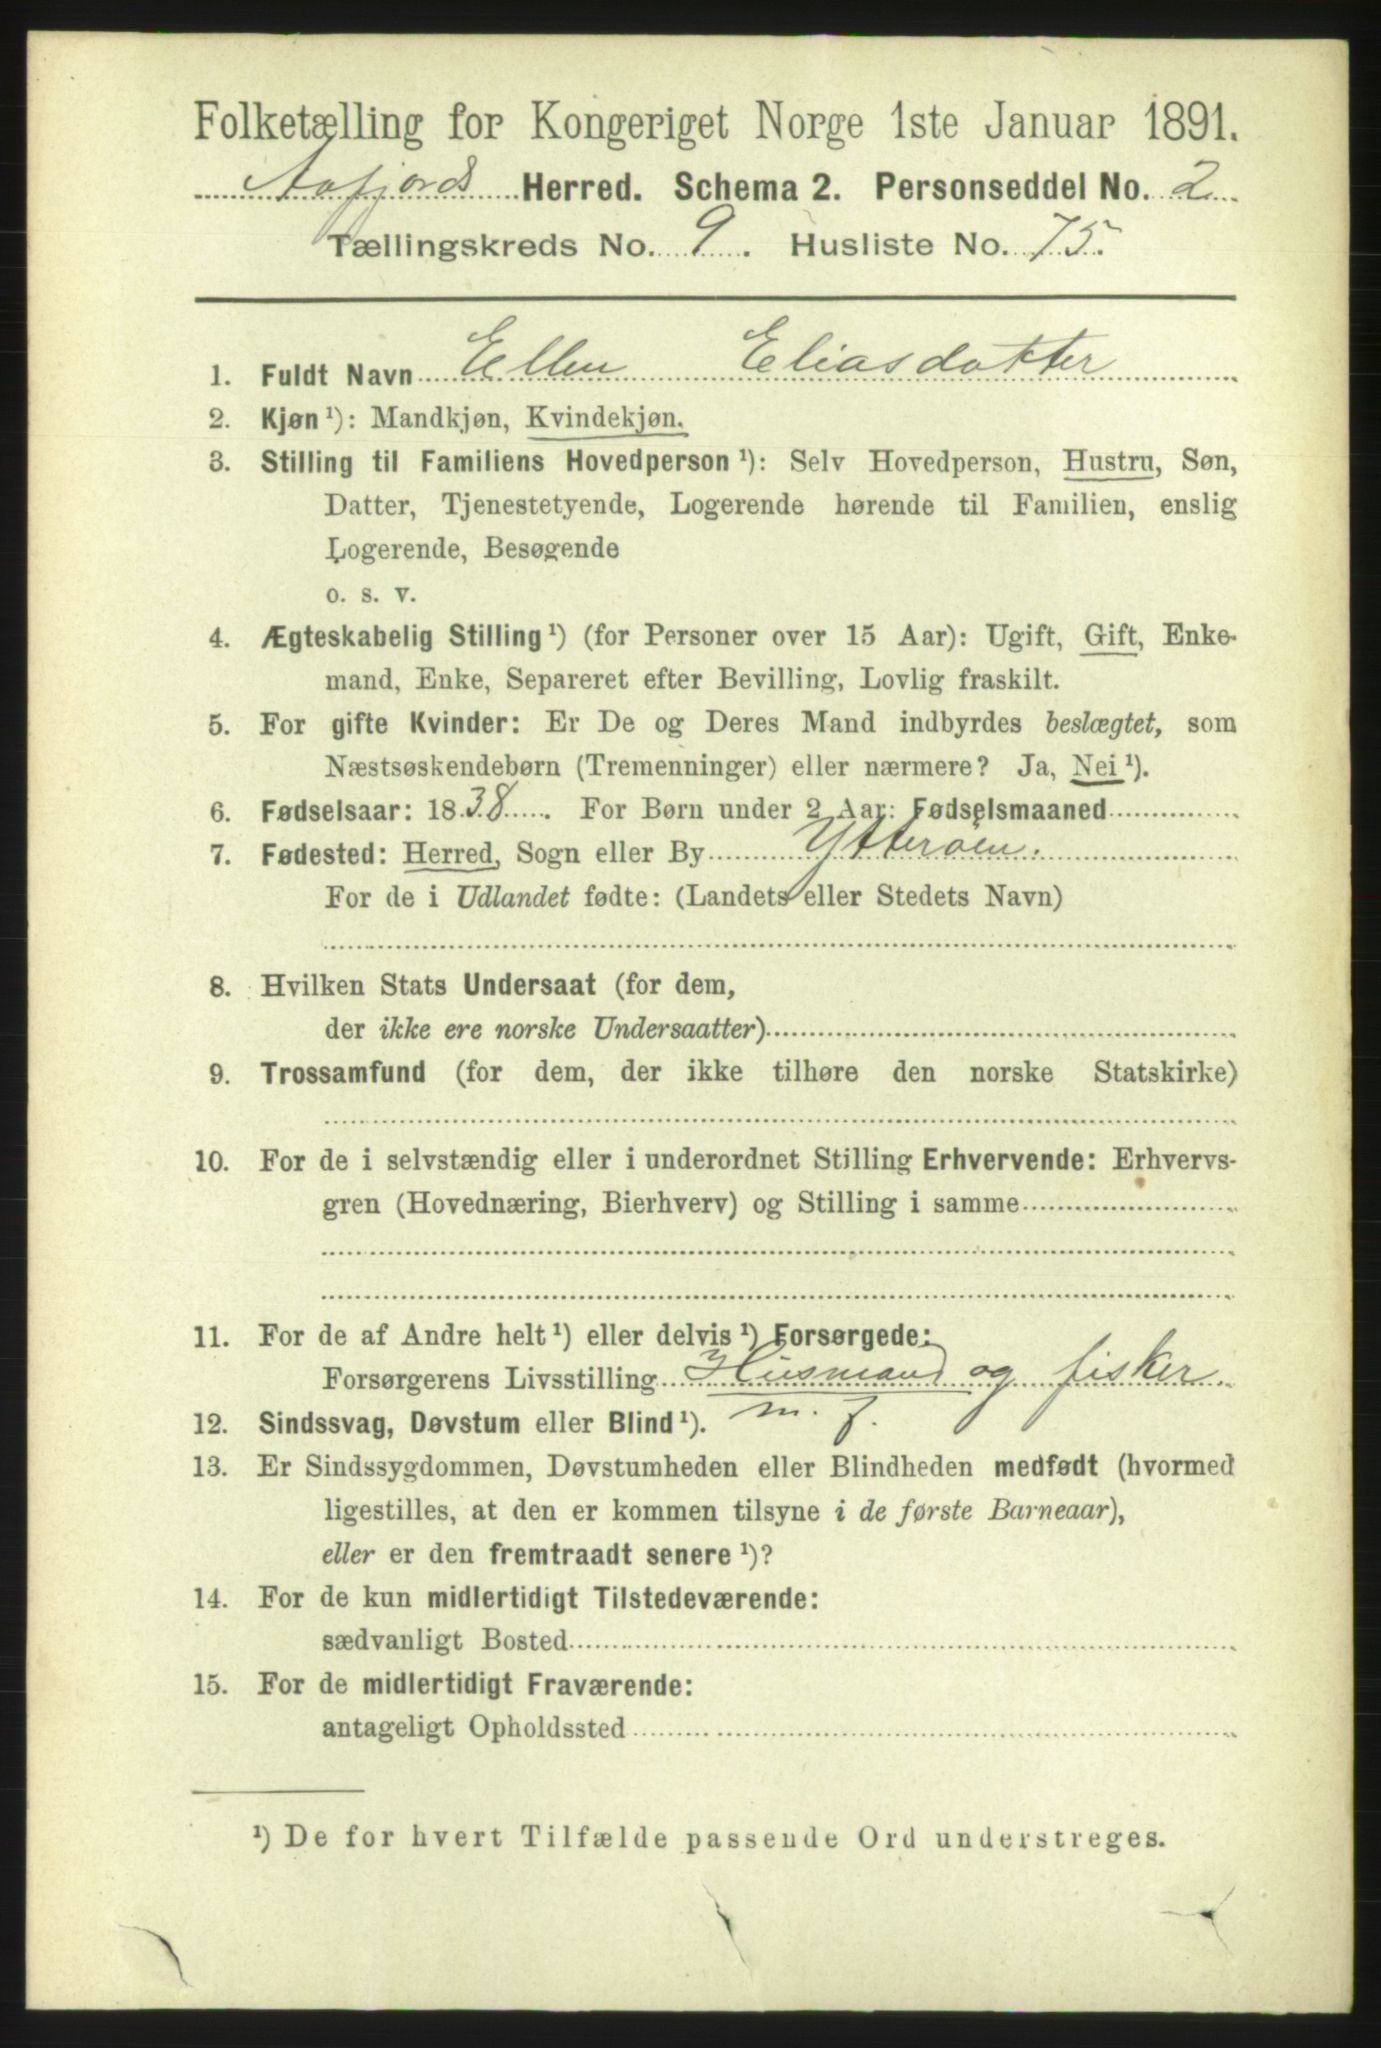 Folketælling for Kongeriget Norge 1ste Januar 1891.
Aafjords Herred. Schema 2. Personseddel No. 2
Tællingskreds No. 9. Husliste No. 75.
1. Fuldt Navn Ellen Eliasdatter
2. Kjøn ¹): Mandkjøn, Kvindekjøn.
3. Stilling til Familiens Hovedperson ¹): Selv Hovedperson, Hustru, Søn,
Datter, Tjenestetyende, Logerende hørende til Familien, enslig
Logerende, Besøgende
o. s. v.
4. Ægteskabelig Stilling ¹) (for Personer over 15 Aar): Ugift, Gift, Enke-
mand, Enke, Separeret efter Bevilling, Lovlig fraskilt.
5. For gifte Kvinder: Er De og Deres Mand indbyrdes beslægtet, som
Næstsøskendebørn (Tremenninger) eller nærmere? Ja, Nei ¹).
6. Fødselsaar: 1838. For Børn under 2 Aar: Fødselsmaaned
7. Fødested: Herred, Sogn eller By Ytterøen.
For de i Udlandet fødte: (Landets eller Stedets Navn)
8. Hvilken Stats Undersaat (for dem,
der ikke ere norske Undersaatter)
9. Trossamfund (for dem, der ikke tilhøre den norske Statskirke)
10. For de i selvstændig eller i underordnet Stilling Erhvervende: Erhvervs-
gren (Hovednæring, Bierhverv) og Stilling i samme
11. For de af Andre helt ¹) eller delvis ¹) Forsørgede:
Forsørgerens Livsstilling Husmand og fisker.
m. f.
12. Sindssvag, Døvstum eller Blind ¹).
13. Er Sindssygdommen, Døvstumheden eller Blindheden medfødt (hvormed
ligestilles, at den er kommen tilsyne i de første Barneaar),
eller er den fremtraadt senere ¹)?
14. For de kun midlertidigt Tilstedeværende:
sædvanligt Bosted
15. For de midlertidigt Fraværende:
antageligt Opholdssted
¹) De for hvert Tilfælde passende Ord understreges.